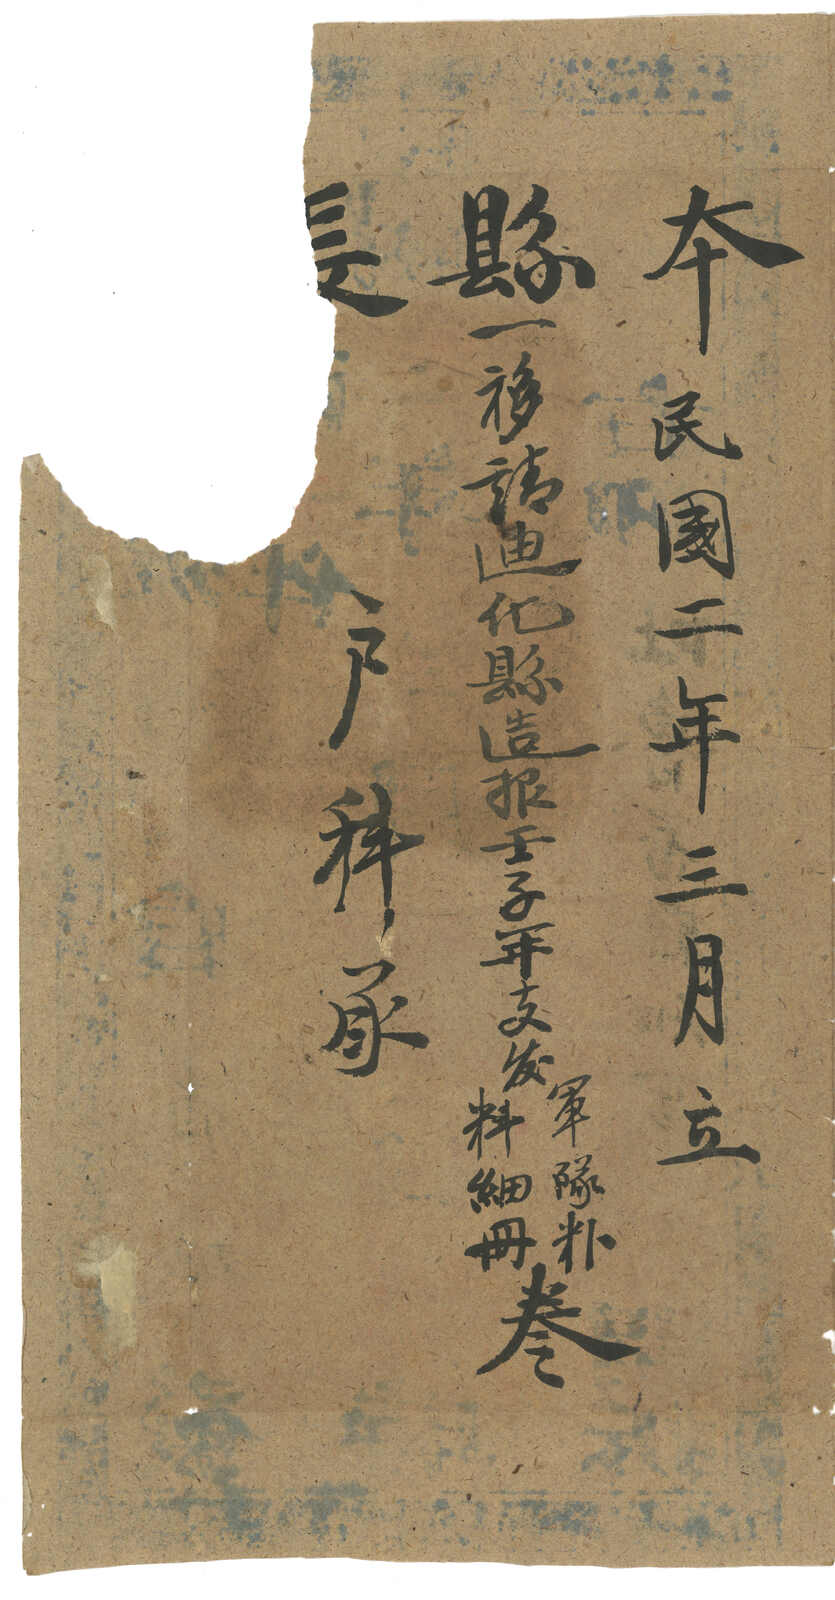 本 民國二年三月立
縣 一移請迪化縣造报壬子年支发
軍隊
料細冊
卷
長 戶科承